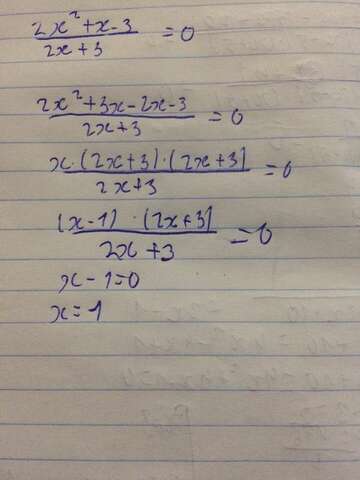 2x² + x - 3 / 2x + 3 = 0
2x² + 3x - 2x - 3 / 2x + 3 = 0
x · (2x + 3) · (2x + 3) / 2x + 3 = 0
(x - 1) · (2x + 3) / 2x + 3 = 0
x - 1 = 0
x = 1